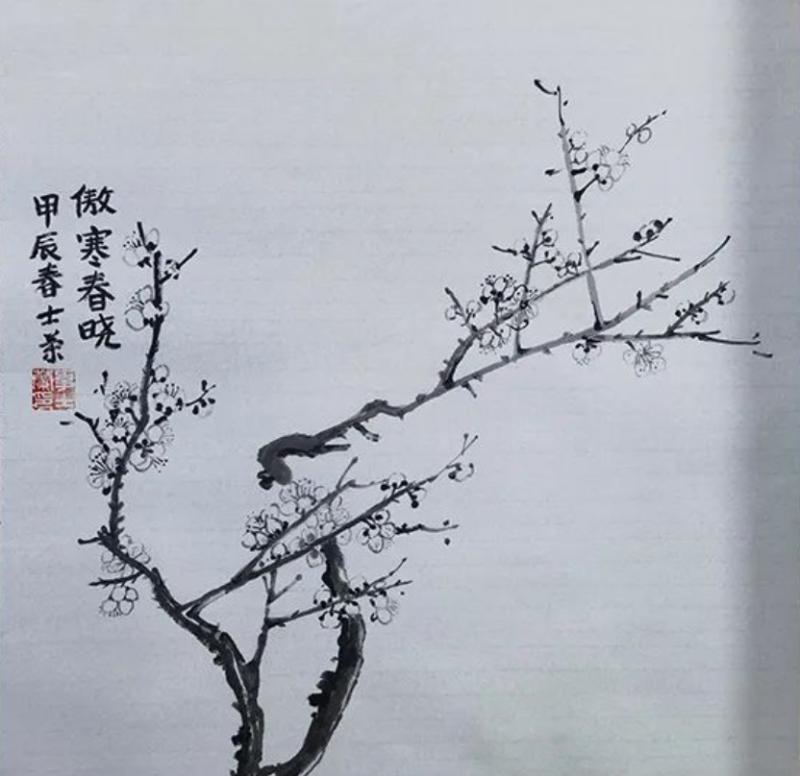 傲寒春晓
甲辰春士荣